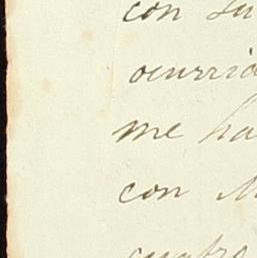 con su
ocurrid
me ha
con M
cuatro